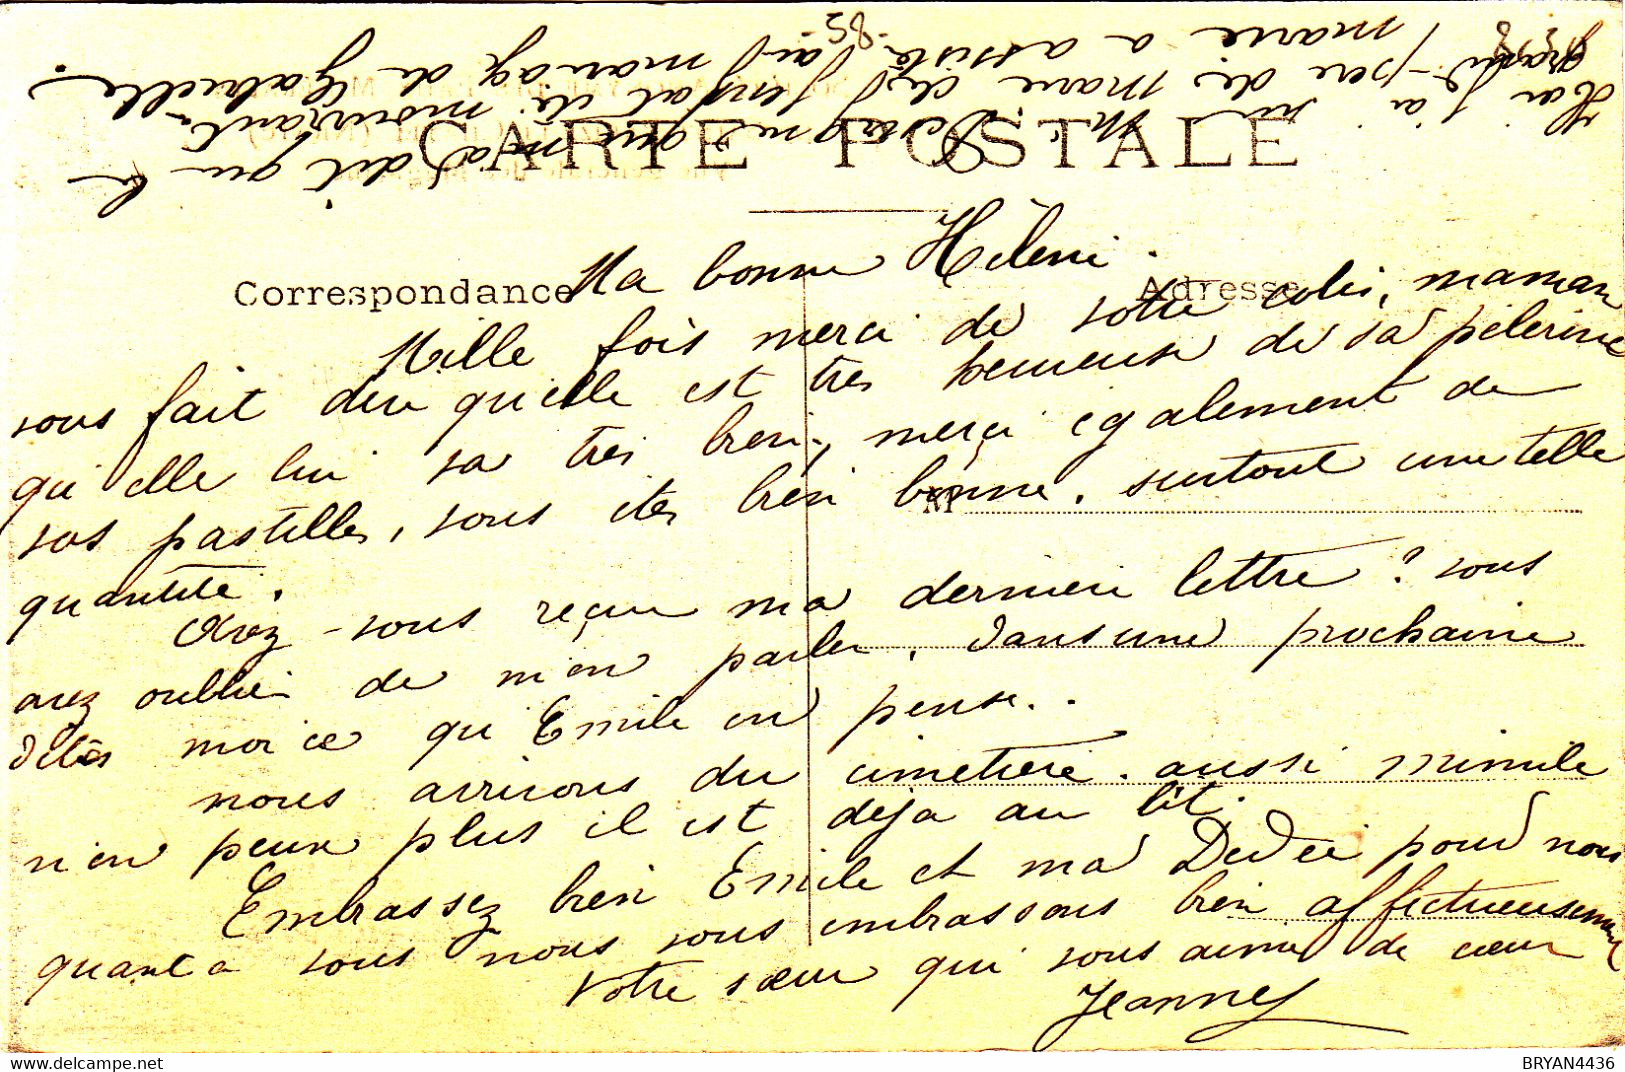 CARTE POSTALE
Correspondance
Adresse
M
Ma bonne Hélène.
Mille fois merci de votre colis, maman
vous fait dire qu'elle est très heureuse de sa pèlerine
qui elle lui va très bien, merçi également de
vos pastilles, vous êtes bien bonne. surtout une telle
quantité.
Avez-vous reçue ma dernière lettre? vous
avez oublié de m'en parler, dans une prochaine
dites moi ce qu'Emile en pense..
nous arrivons du cimetière. aussi mimile
n'en peux plus il est déja au lit.
Embrassez bien Emile et ma Dédée pour nous
quant a vous nous vous embrassons bien affectueusement
Votre sœur qui vous aime de cœur
Jeanne
Hier j'ai
grand-père de Marie
Marie a assisté
au mariage de Gabrielle.
m'a dit que le
mourant
85
BRYAN4436